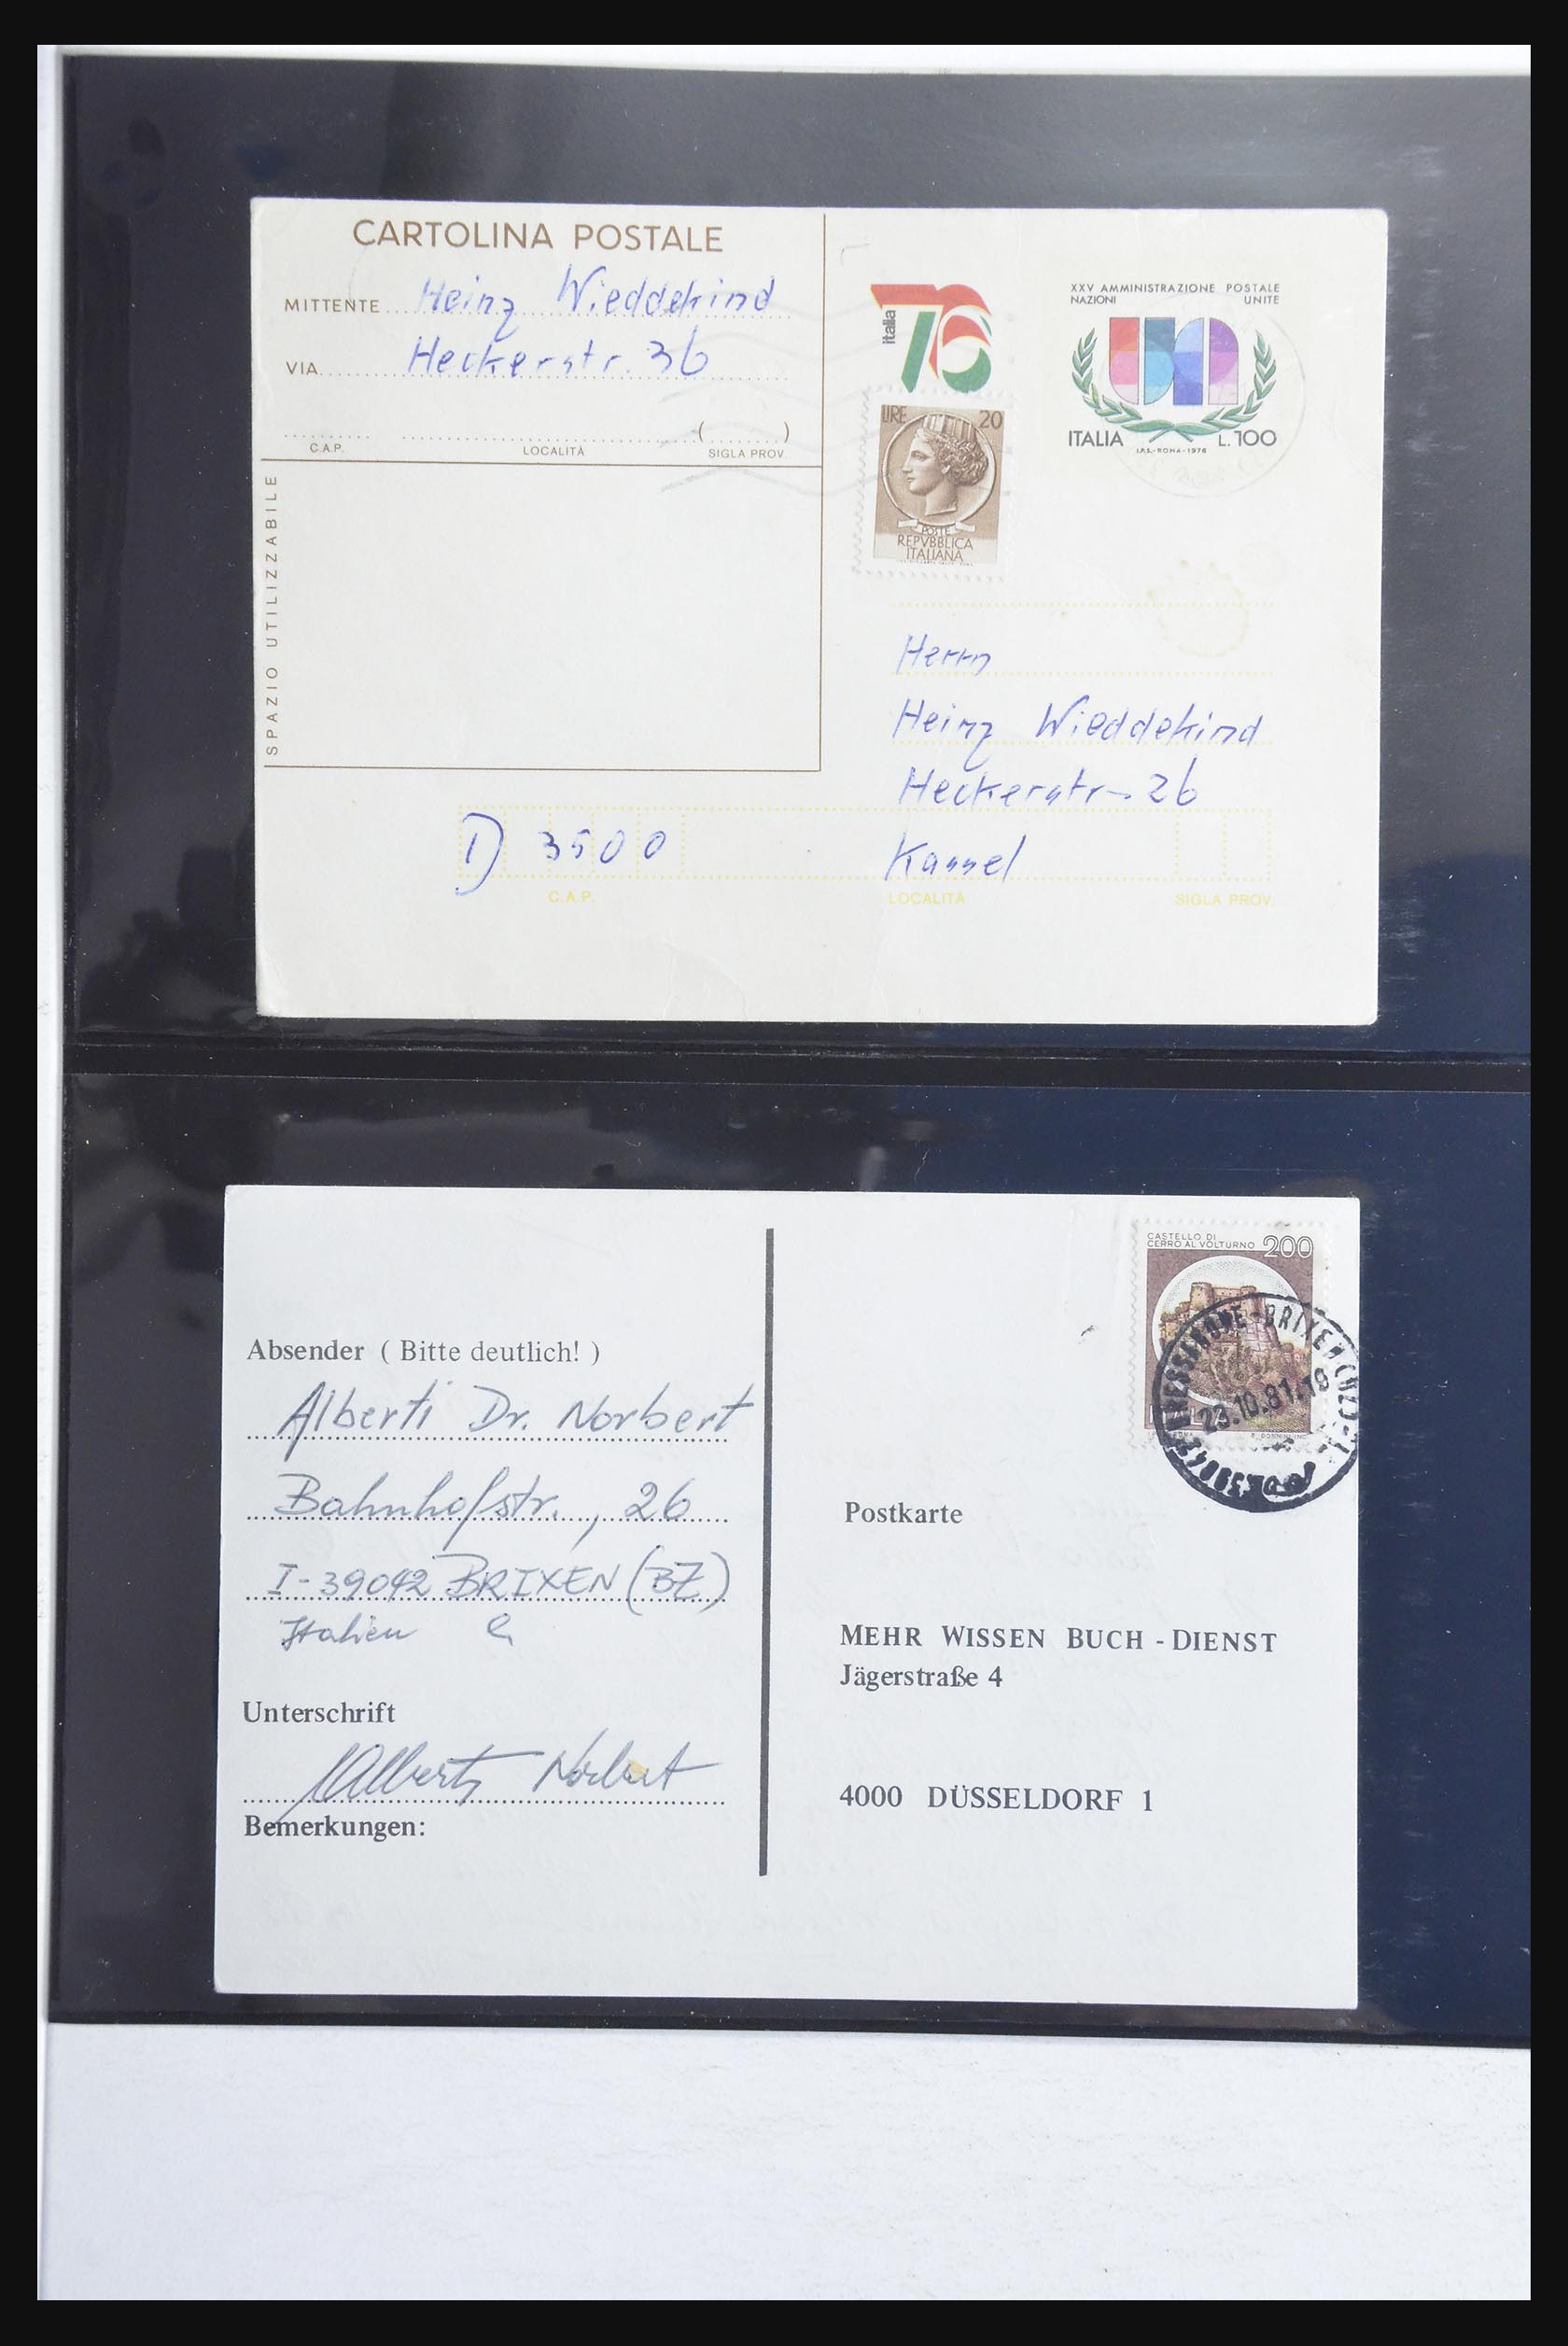 CARTOLINA POSTALE
MITTENTE Heinz Wieddekind
VIA Heckerstr. 36
( )
C.A.P. LOCALITÀ SIGLA PROV.
SPAZIO UTILIZZABILE
italia 76
XXV AMMINISTRAZIONE POSTALE
NAZIONI UNITE
ITALIA L.100
I.P.S.-ROMA-1976
LIRE 20
POSTE
REPVBBLICA
ITALIANA
Herrn
Heinz Wieddekind
Heckerstr. 26
D 3500 Kassel
C.A.P. LOCALITÀ SIGLA PROV.
CASTELLO DI
CERRO AL VOLTURNO 200
BRESSANONE-BRIXEN (BZ)
23.10.81.18
Absender ( Bitte deutlich! )
Alberti Dr. Norbert
Bahnhofstr., 26
I-39042 BRIXEN (BZ)
Italien
Unterschrift
Alberti Norbert
Bemerkungen:
Postkarte
MEHR WISSEN BUCH - DIENST
Jägerstraße 4
4000 DÜSSELDORF 1